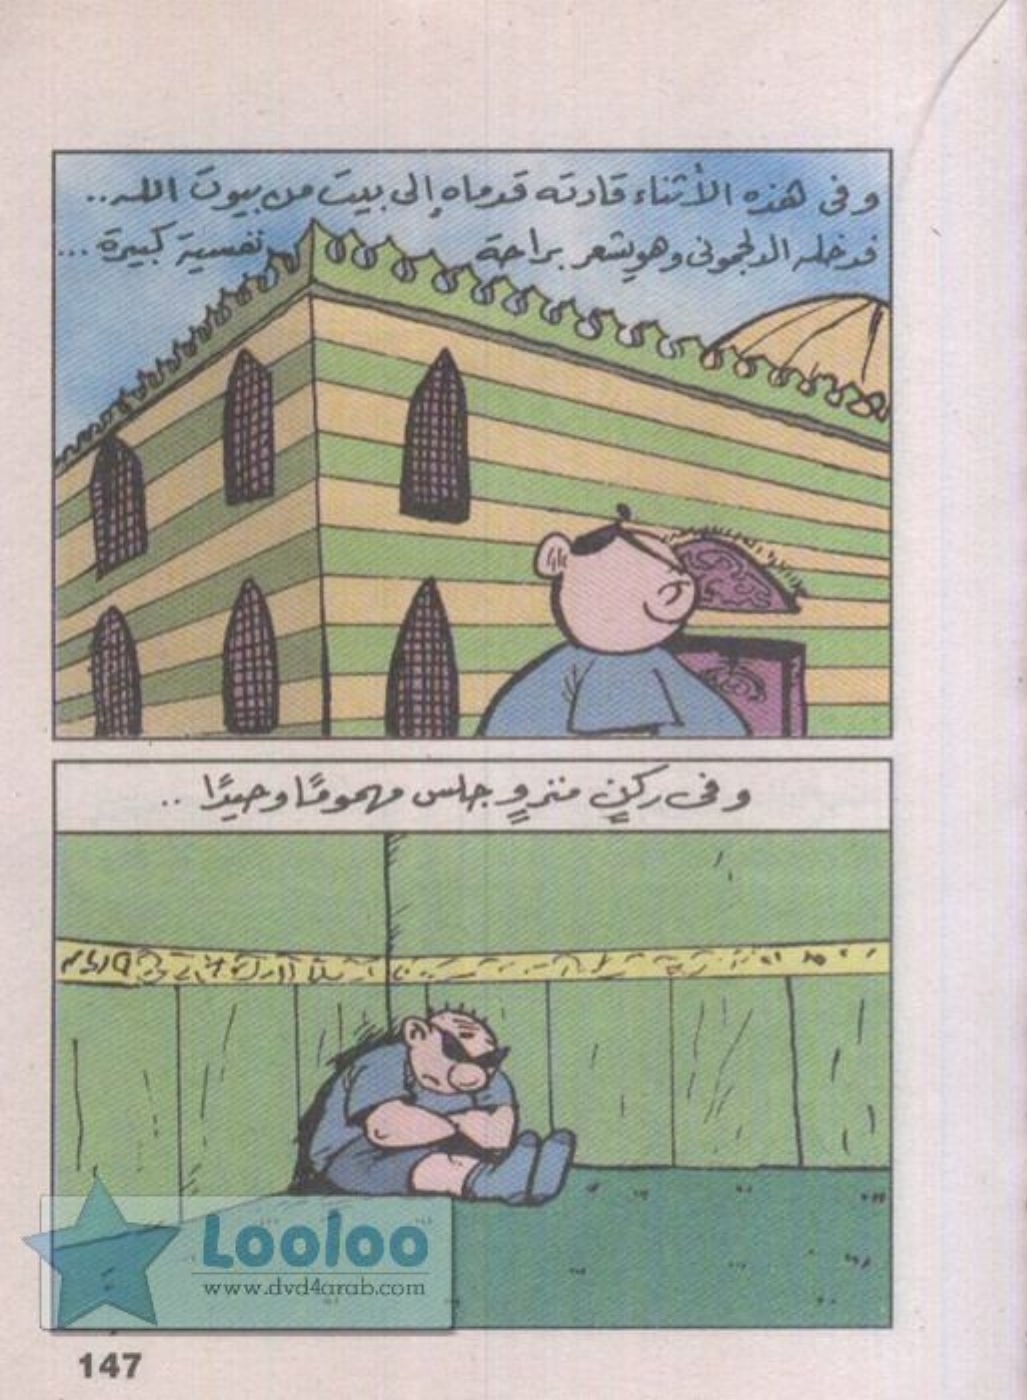 وفى هذه الأثناء قادته قدماه إلى بيت من بيوت الله..
فدخله الدلجمونى وهو يشعر براحة نفسية كبيرة ...
وفى ركنٍ منزوٍ جلس مهمومًا وحيدًا ..
Looloo
www.dvd4arab.com
147